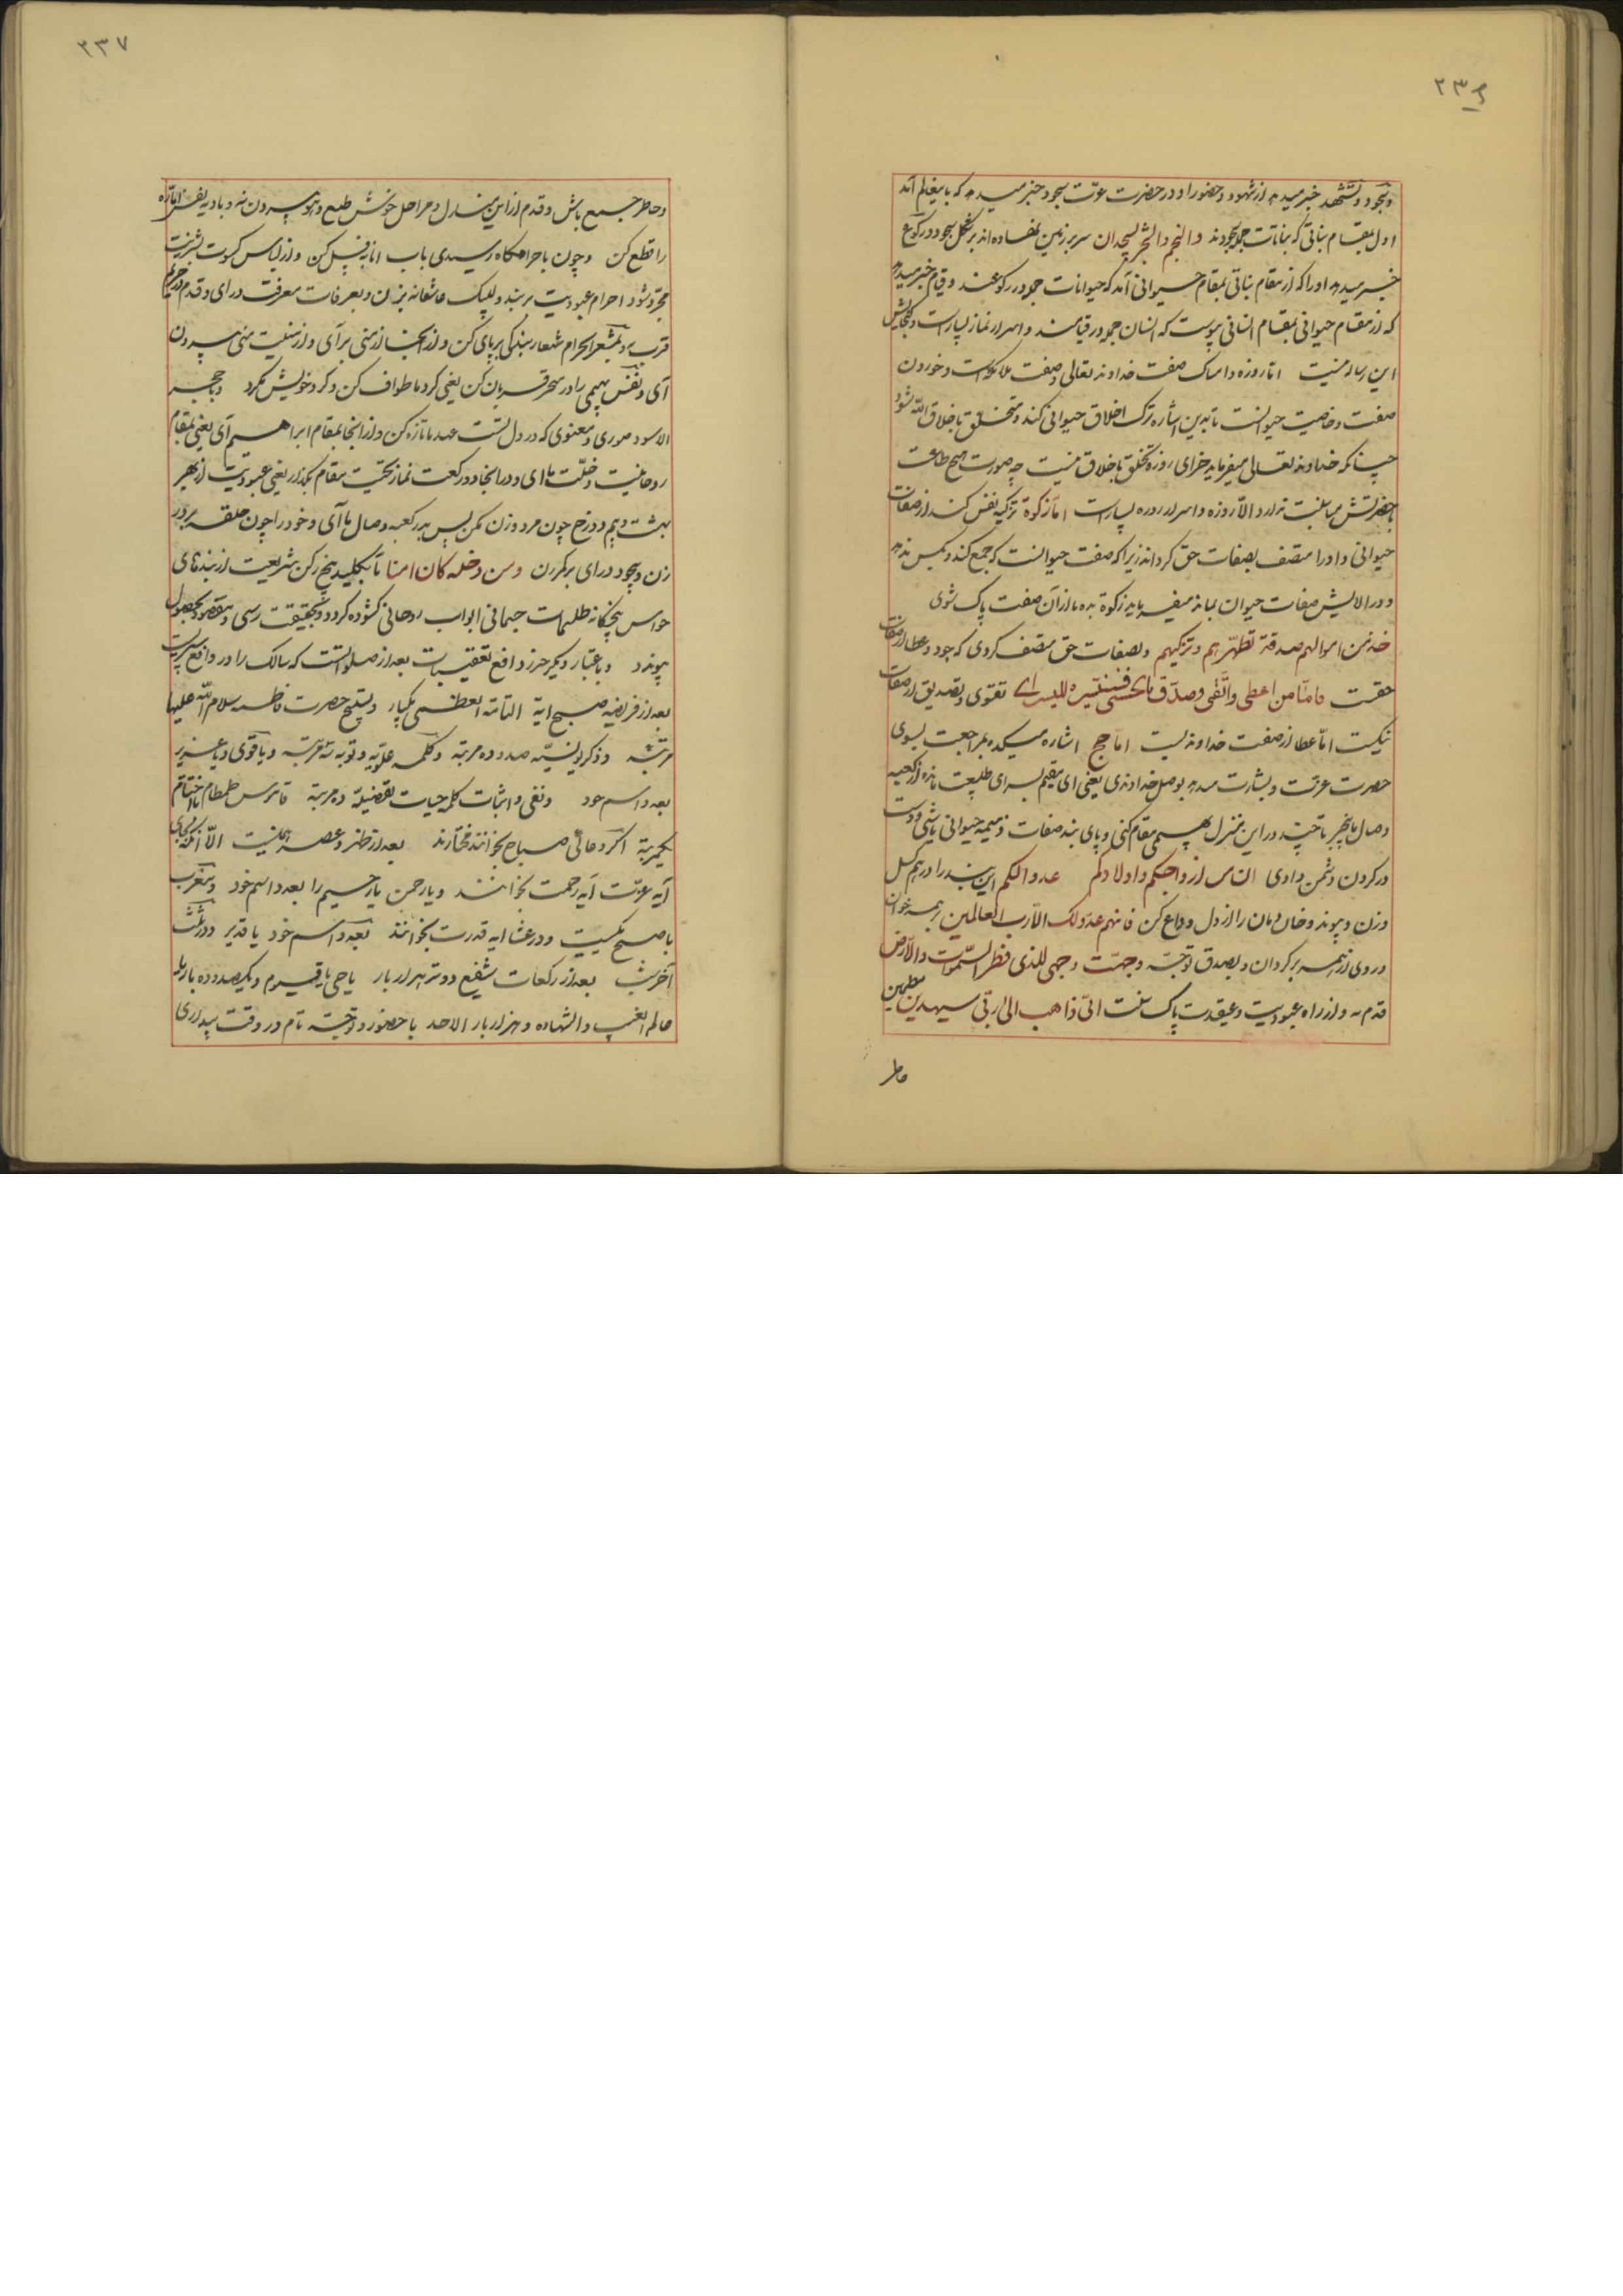 ۲۳۶
وبجود وتشهد خبر میدهد از شهود وحضور او در حضرت عزت سجود خبر میدهد که باین عالم آمد
اول بمقام نباتی که نباتات جمله در سجودند والنجم والشجر یسجدان سر بر زمین نهاده اند بر شکل سجود ورکوع
خبر میدهد او را که از مقام نباتی بمقام حیوانی آمد که حیوانات جمله در رکوعند وقیام خبر میدهد
که از مقام حیوانی بمقام انسانی پیوست که انسان جمله در قیامند واسرار نماز بسیار است وگنجایش
این رساله نیست اما روزه وامساک صفت خداوند تعالی وصفت ملائکه است وخوردن
صفت وخاصیت حیوانست تا بدین اشاره ترک اخلاق حیوانی کند ومتخلق باخلاق الله شود
چنانکه خداوند تعالی میفرماید جزای روزه تخلق باخلاق نیست چه صورت هیچ طاعت
بحضرتش مناسبت ندارد الا روزه واسرار روزه بسیار است اما زکوة تزکیه نفس کند از صفات
حیوانی واو را متصف بصفات حق گرداند زیرا که صفت حیوانست که جمع کند وبکس ندهد
ودر آلایش صفات حیوان بماند میفرماید زکوة بده تا از آن صفت پاک شوی
خذ من اموالهم صدقة تطهرهم وتزکیهم وبصفات حق متصف گردی که جود وعطا از صفات
حقست فامّا من اعطی واتّقی وصدّق بالحسنی فسنیسّره للیسری تقوی وتصدیق از صفات
نیکست امّا عطا از صفت خداوندیست اما حج اشاره میکند بمراجعت بسوی
حضرت عزت وبشارت میدهد بوصل خداوندی یعنی ای مقیم سرای طبیعت مانده از کعبه
وصال بیخبر تا چند در این منزل بهیمی مقام کنی وپای بند صفات ذمیمه حیوانی باشی ودست
در گردن دشمن داری ان من ازواجکم واولادکم عدوا لکم این بند را در هم گسل
وزن وپیوند وخان ومان را از دل وداع کن فانهم عدوّ لی الّا رب العالمین برهمه خوان
وروی از همه بر گردان وبصدق توجّه وجّهت وجهی للذی فطر السّموات والارض
قدم نه واز راه عبودیت وعقیدت پاک بگفت انّی ذاهب الی ربّی سیهدین مطمئن
خاطر
۲۳۷
وخاطر جمع باش وقدم از این منزل ومراحل خوش طبع وهوا بیرون نه وبادیه نفس امّاره
را قطع کن وچون باحرامگاه رسیدی باب انابت غسل کن واز لباس کسوت بشریت
مجرّد شو واحرام عبودیت بربند ولبیک عاشقانه بزن وبعرفات معرفت درآی وقدم در حریم
قرب نه وبمشعر الحرام شعار بندگی بر پای کن واز آنجا از منی برآی واز منیت منی بیرون
آی ونفس بهیمی را در منحر قربان کن یعنی گرد ما طواف کن وگرد خویش مگرد وبا حجر
الاسود صوری ومعنوی که در دل تست عهد ما تازه کن واز آنجا بمقام ابراهیم آی یعنی بمقام
روحانیت وخلّت ما آی ودر آنجا دو رکعت نماز تحیت مقام بگذار یعنی عبودیت از بهر
بهشت وبیم دوزخ چون مرد وزن مکن پس بدر کعبه وصال ما آی وخود را چون حلقه بر در
زن وبیخود درآی برگردن ومن دخله کان امنا تا بکلید پنج رکن شریعت از بندهای
حواس پنجگانه طلسمات جسمانی ابواب روحانی گشوده گردد وبحقیقت رسی ومقصود بحصول
پیوندد وباعتبار دیگر حرز دافع تعقیبات بعد از صلوات است که سالک را در دافع
بعد از فریضه صبح آیة التامّة العظمی یکبار وتسبیح حضرت فاطمه سلام الله علیها
مرتبه وذکر یونسیّه صد وده مرتبه وکلمه علویه وتوبه نه مرتبه ویا قوی ویا عزیز
بعدد اسم خود ونفی واثبات کلمه حیات تفضیلیّه ده مرتبه
یکمرتبه اگر دعای صباح بخوانند مختارند بعد از ظهر وعصر همینست الّا آنکه بجای
آیه عزّت آیه رحمت بخوانند ویا رحمن یا رحیم را بعدد اسم خود ومغرب
با صبح یکیست ودر عشا آیه قدرت بخوانند بعدد اسم خود یا قدیر ودر ثلث
آخر شب بعد از رکعات شفع ووتر هزار بار یا حی یا قیوم ویکصد وده بار یا
عالم الغیب والشهاده وهزار بار الاحد با حضور وتوجّه تام در وقت بیداری